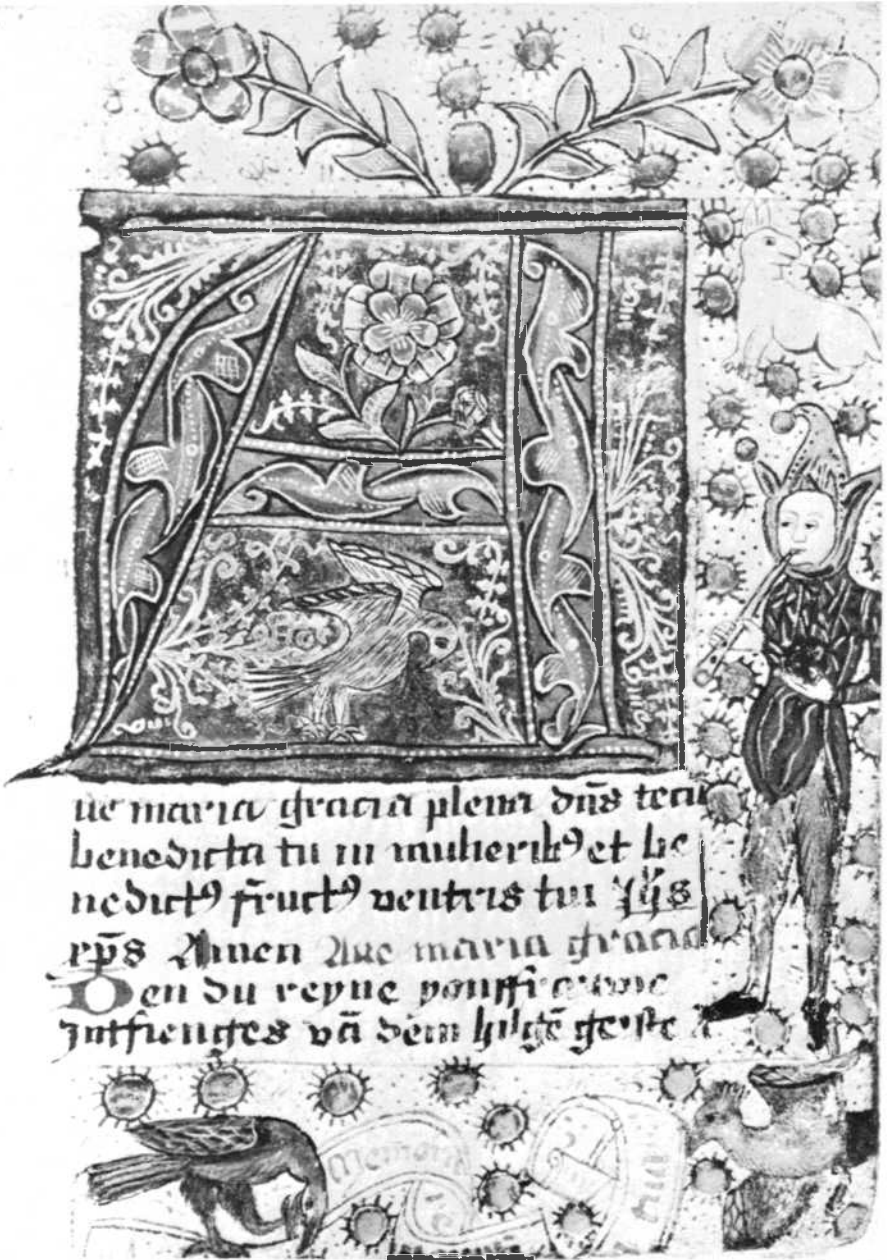 A
ue maria gracia plena dn̄s tecū
benedicta tu in mulierib⁹ et be
nedict⁹ fruct⁹ ventris tui
xp̄s Amen Aue maria gracia
en du reyne
vā dem hilgē geiste
Memento